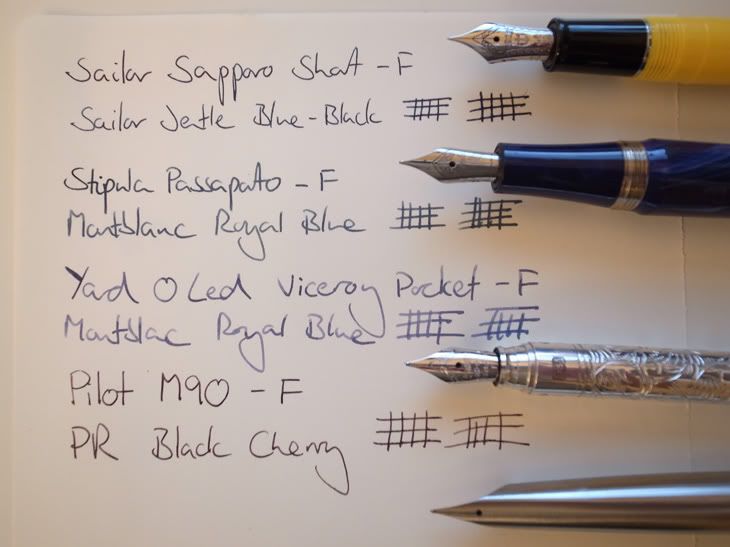 Sailor Sapporo Short - F
Sailor Jentle Blue-Black
Stipula Passaporto - F
Montblanc Royal Blue
Yard O Led Viceroy Pocket - F
Montblac Royal Blue
Pilot M90 - F
PR Black Cherry